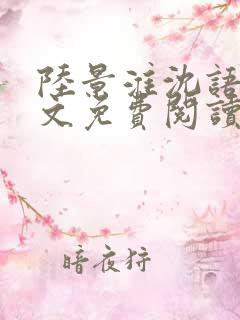 陸景淮沈語
文免費閱讀
暗夜狩